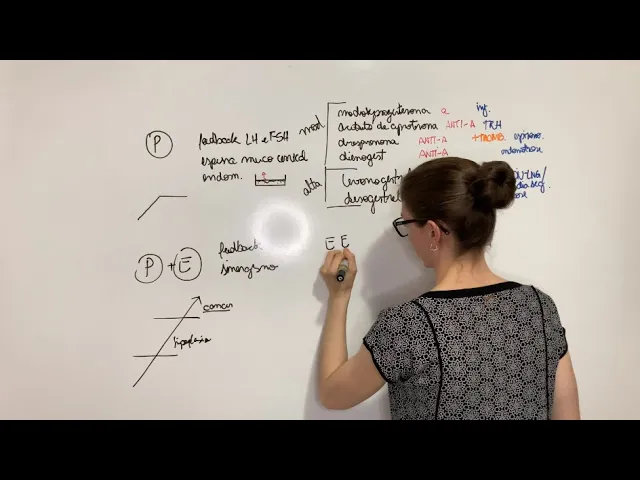 P
feedback LH e FSH
espessa muco cervical
endom.
mod
medroxiprogesterona a inj.
acetato de ciproterona ANTI-A TRH
drospirenona ANTI-A +TROMB. espirono.
dienogest ANTI-A endometriose
alta
levonorgestrel
desogestrel
P + E
feedback
sinergismo
E E
câncer
hiperplasia